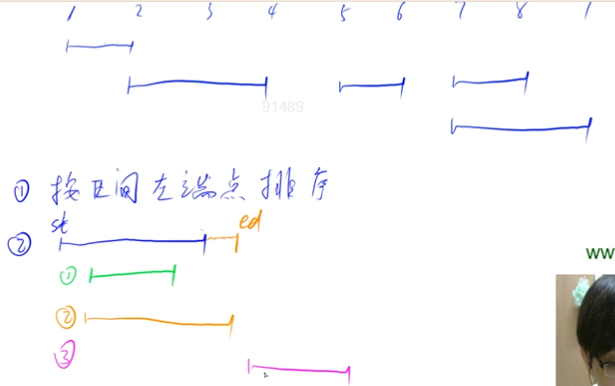 1 2 3 4 5 6 7 8 1
91489
① 按区间左端点排序
st ed
②
①
②
③
ww